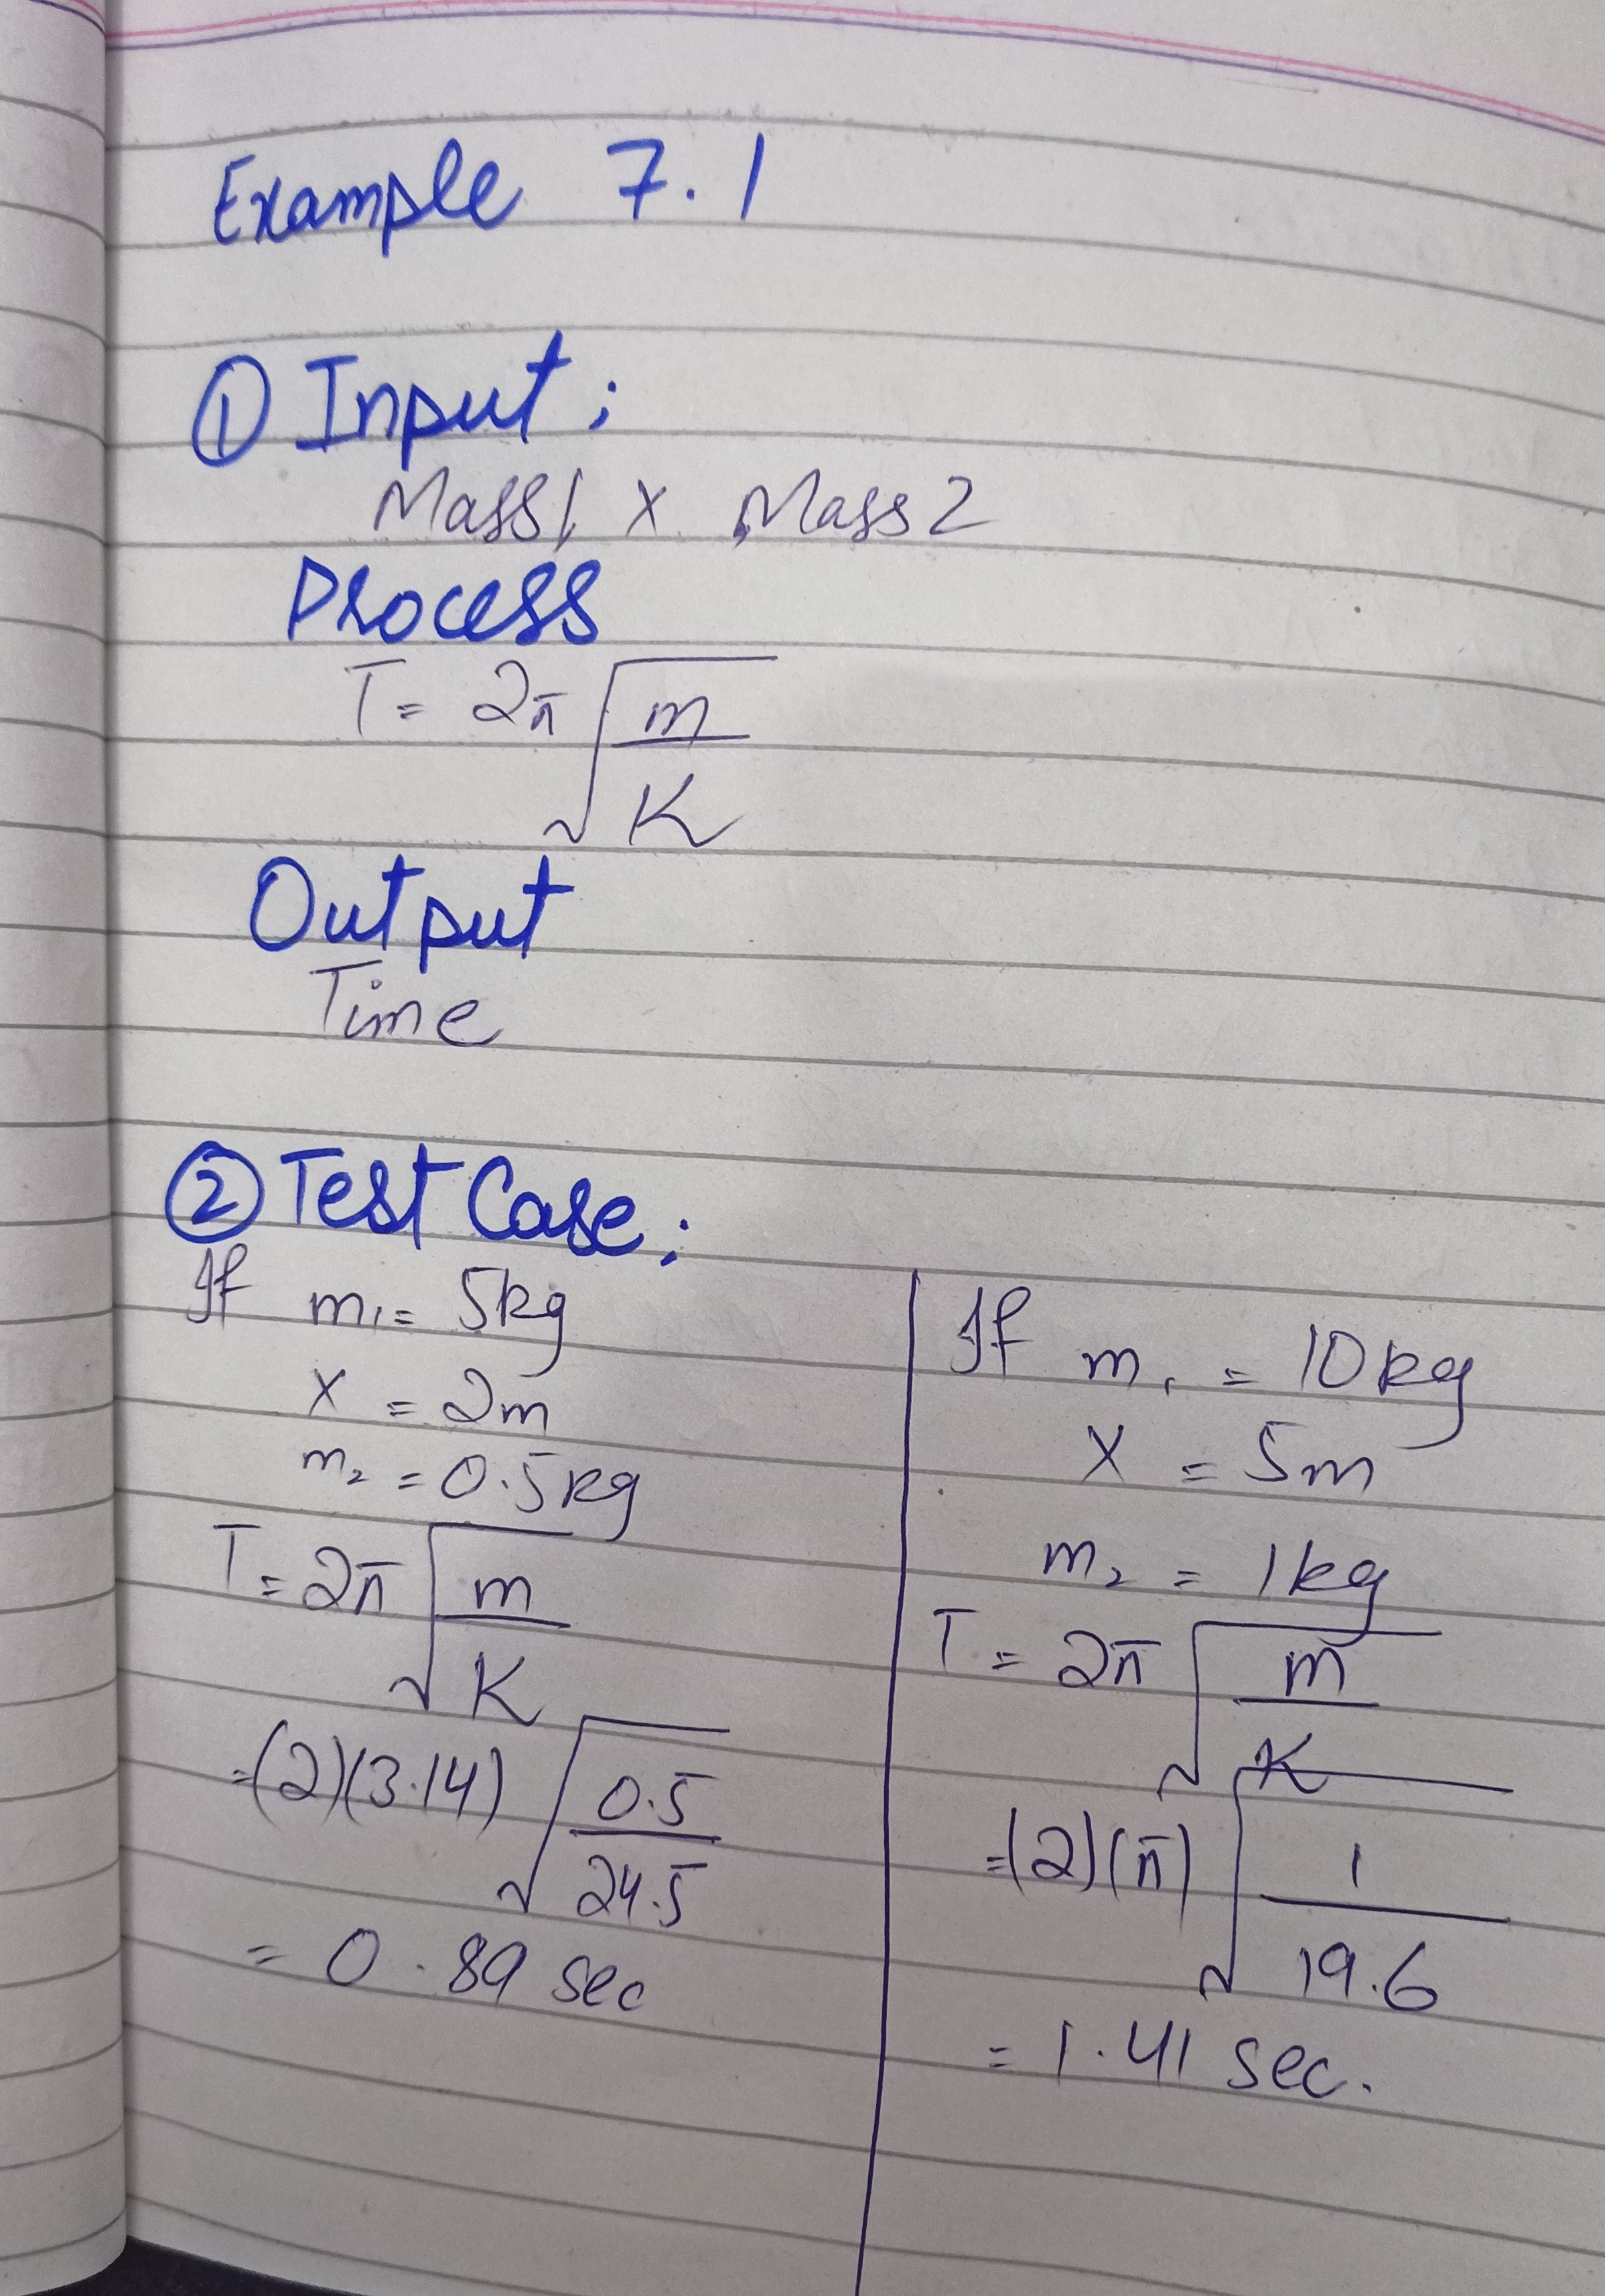 Example 7.1
① Input:
Mass1, x, Mass2
Process
T = 2π √(m/K)
Output
Time
② Test Case:
If m₁ = 5kg
x = 2m
m₂ = 0.5kg
T = 2π √(m/K)
= (2)(3.14) √(0.5/24.5)
= 0.89 sec
If m₁ = 10kg
x = 5m
m₂ = 1kg
T = 2π √(m/K)
= (2)(π) √(1/19.6)
= 1.41 sec.